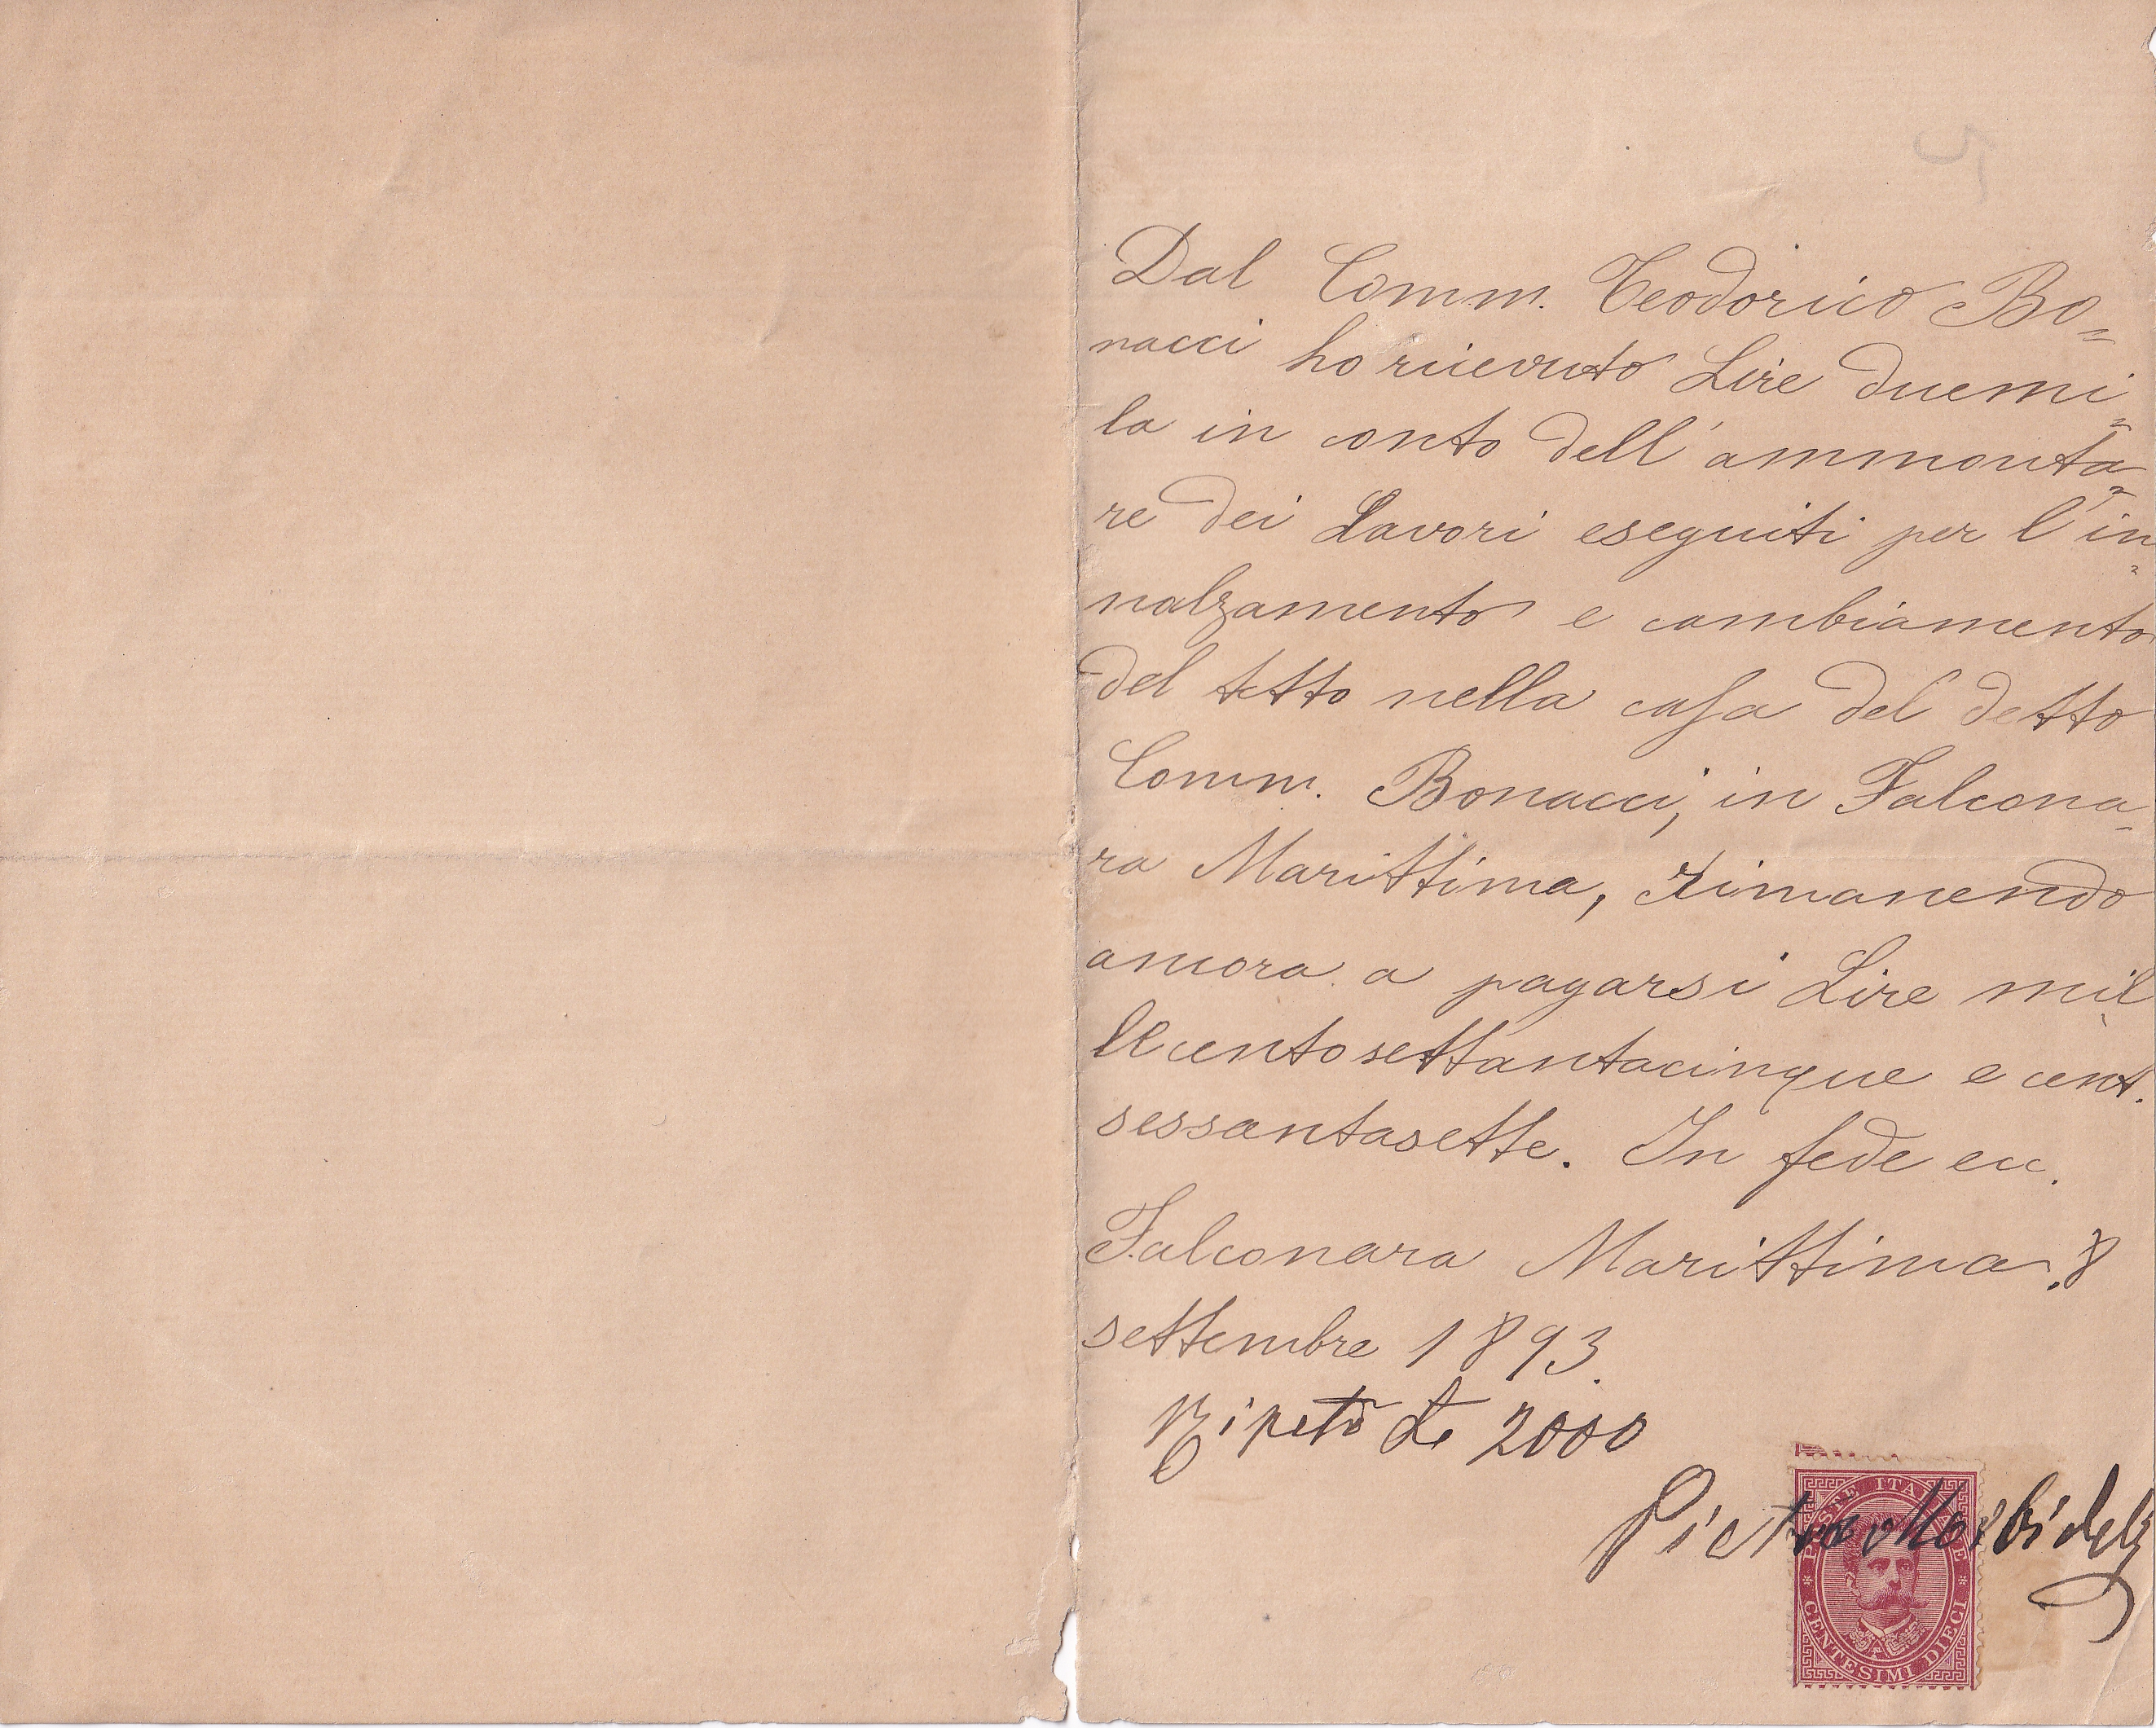 Dal Comm. Teodorico Bo=
nacci ho ricevuto Lire duemi=
la in conto dell'ammonta=
re dei Lavori eseguiti per l'in=
nalzamento e cambiamento
del tetto nella casa del detto
Comm. Bonacci, in Falcona-
ra Marittima, rimanendo
ancora a pagarsi Lire mil-
lecentosettantacinque e cent.
sessantasette. In fede ecc.
Falconara Marittima. 8
settembre 1893.
Ripeto L. 2000
Pietro
POSTE ITALIANE
CENTESIMI DIECI